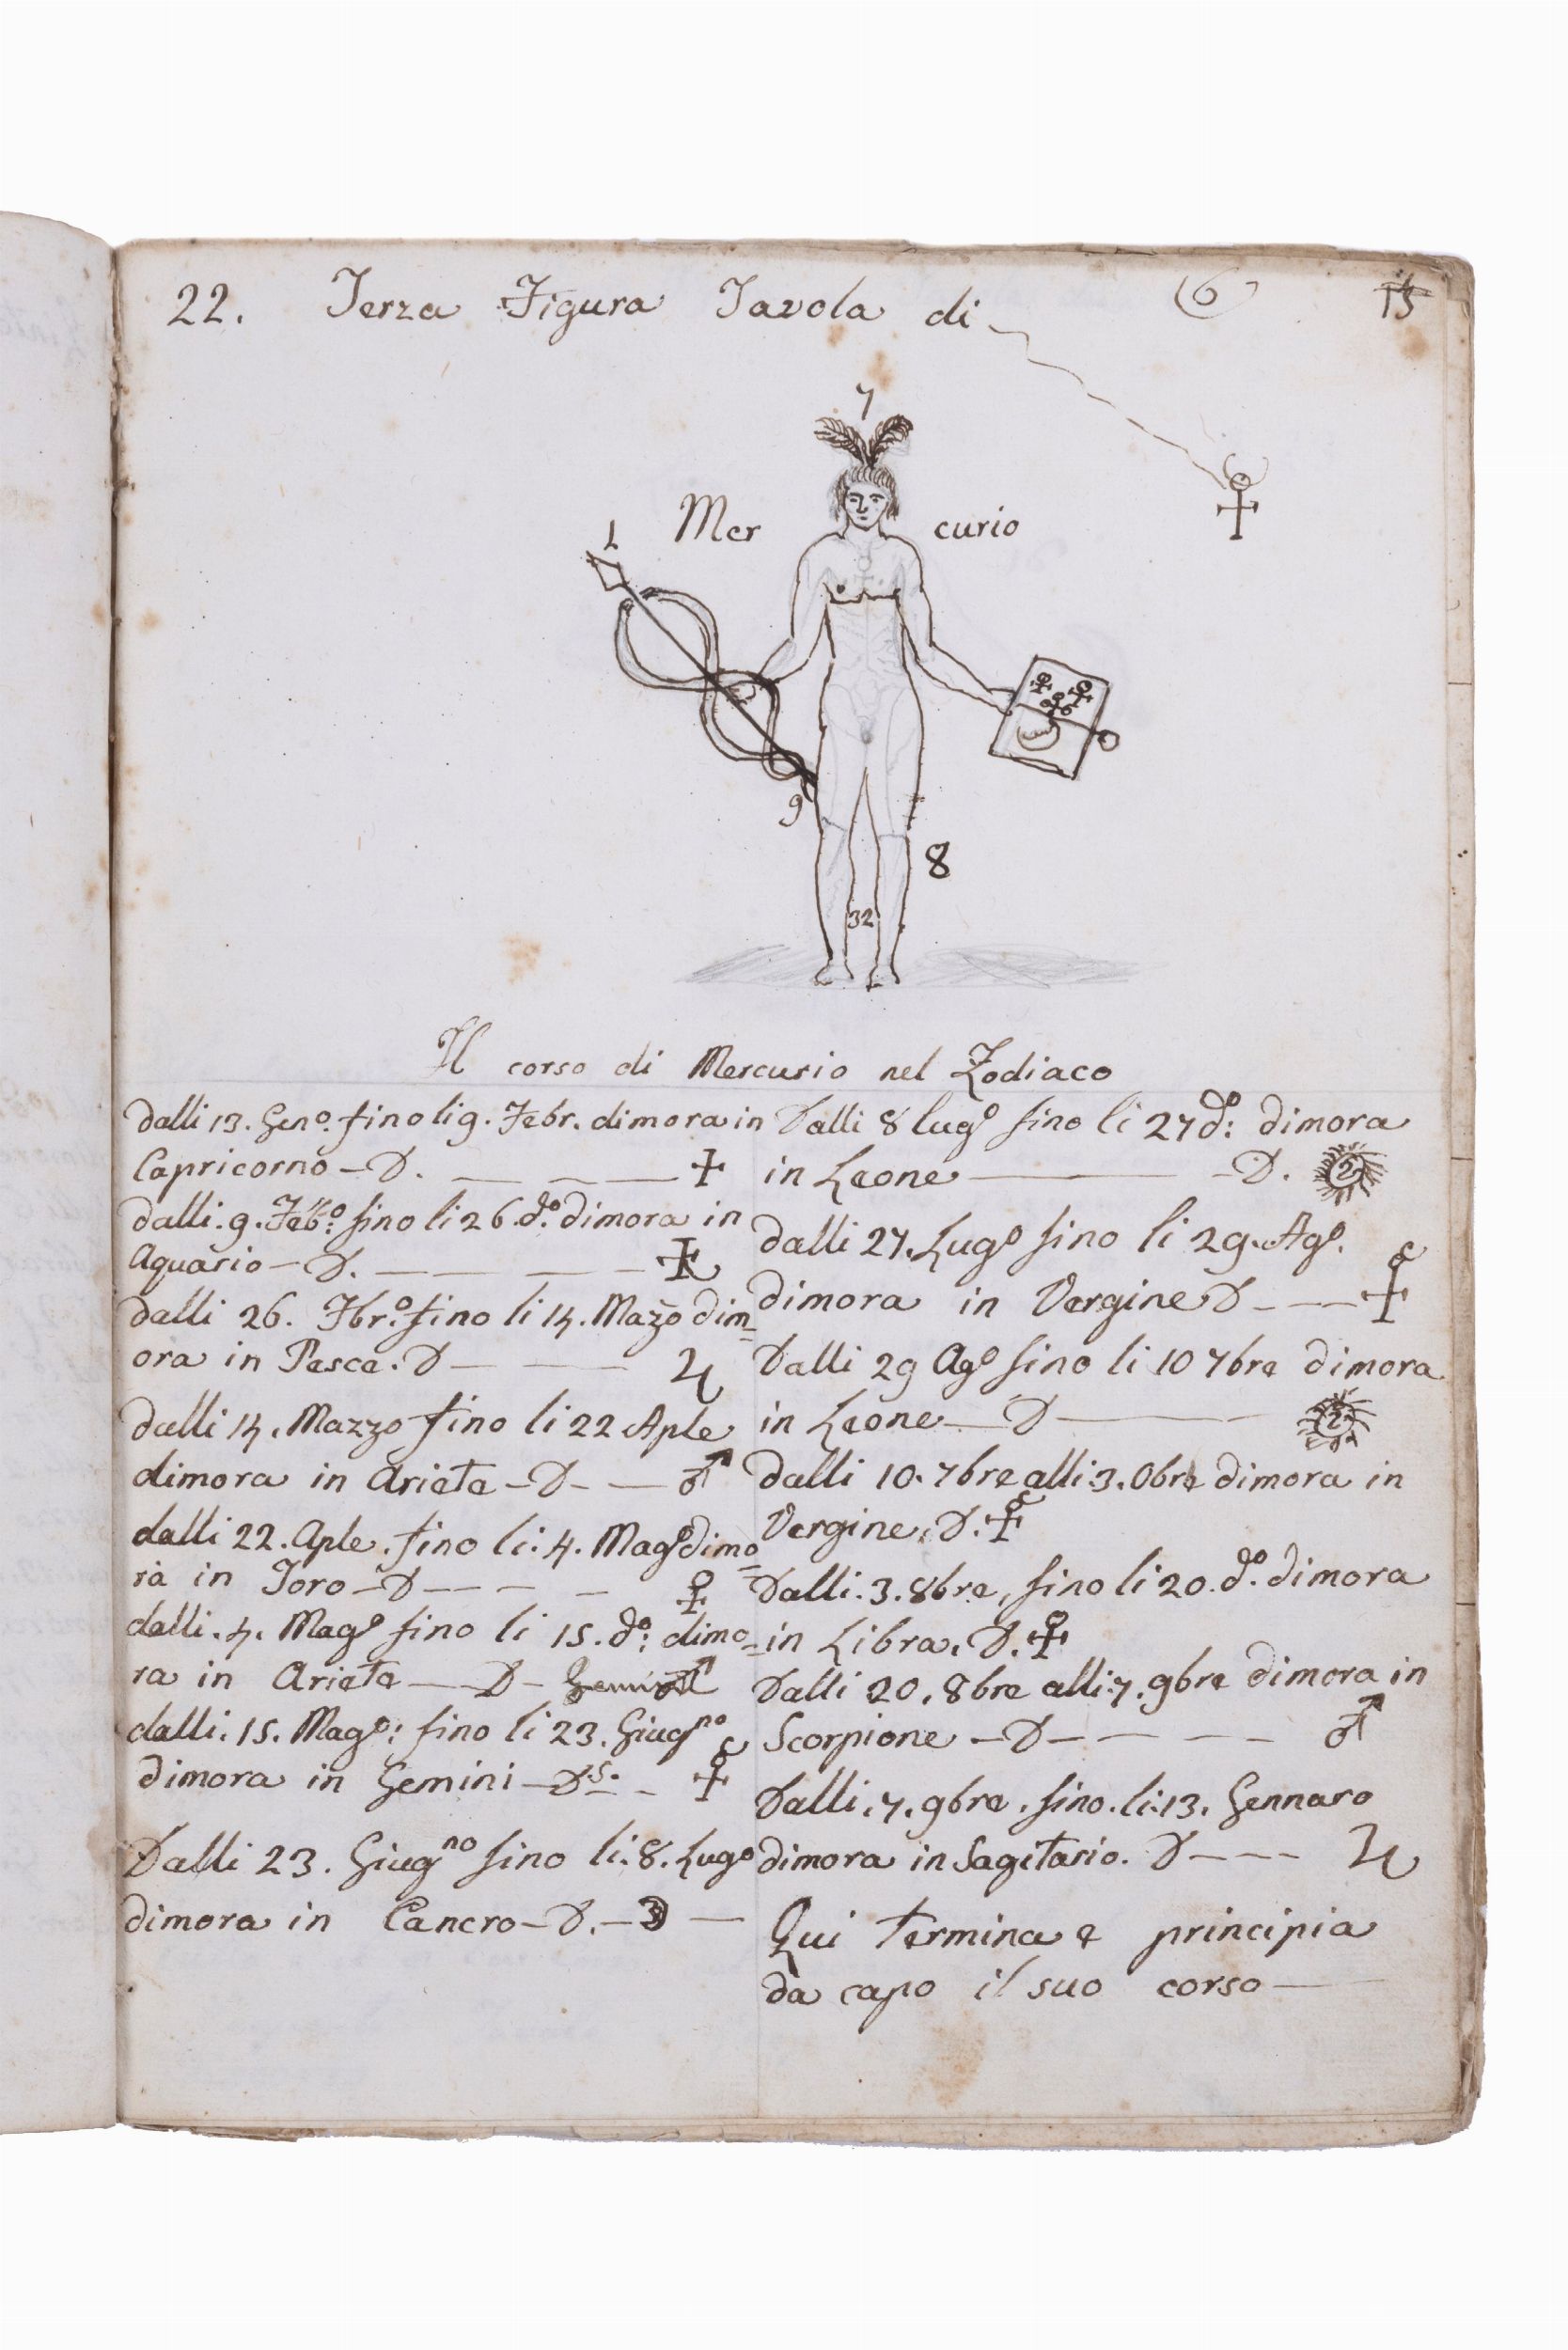 22. Terza Figura Tavola di ☿ 6
7
Mer curio
1
9
8
32
Il corso di Mercurio nel Zodiaco
dalli 13. Genº. fino li 9. Febr. dimora in
Capricorno – D.
dalli. 9. Febº: sino li 26. dº. dimora in
Aquario – D.
dalli 26. Fbr.º fino li 14. Mazo dim=
ora in Pesce. D – ♃
dalli 14. Mazzo fino li 22 Aple
dimora in Ariete – D – ♂
dalli 22. Aple. fino li. 4. Magº dimo=
ra in Toro – D – ♀
dalli. 4. Magº fino li 15. dº: dimo=
ra in Ariete – D – ♂
dalli. 15. Magº: fino li 23. Giugno
dimora in Gemini – D.S. – ☿
Dalli 23. Giugno sino li. 8. Lugº
dimora in Cancro – D. – ☽
Dalli 8 lugº sino li 27 dº: dimora
in Leone – D.
dalli 27. Lugº sino li 29. Agº.
dimora in Vergine D – ☿
Dalli 29 Agº sino li 10 7bre dimora
in Leone – D –
dalli 10. 7bre alli 3. 0bre dimora in
Vergine. D. ☿
Dalli. 3. 8bre, sino li 20. dº. dimora
in Libra. D. ♀
Dalli 20. 8bre alli. 7. 9bre dimora in
Scorpione – D – ♂
Dalli. 7. 9bre. sino. li. 13. Gennaro
dimora in Sagitario. D – ♃
Qui termina e principia
da capo il suo corso –